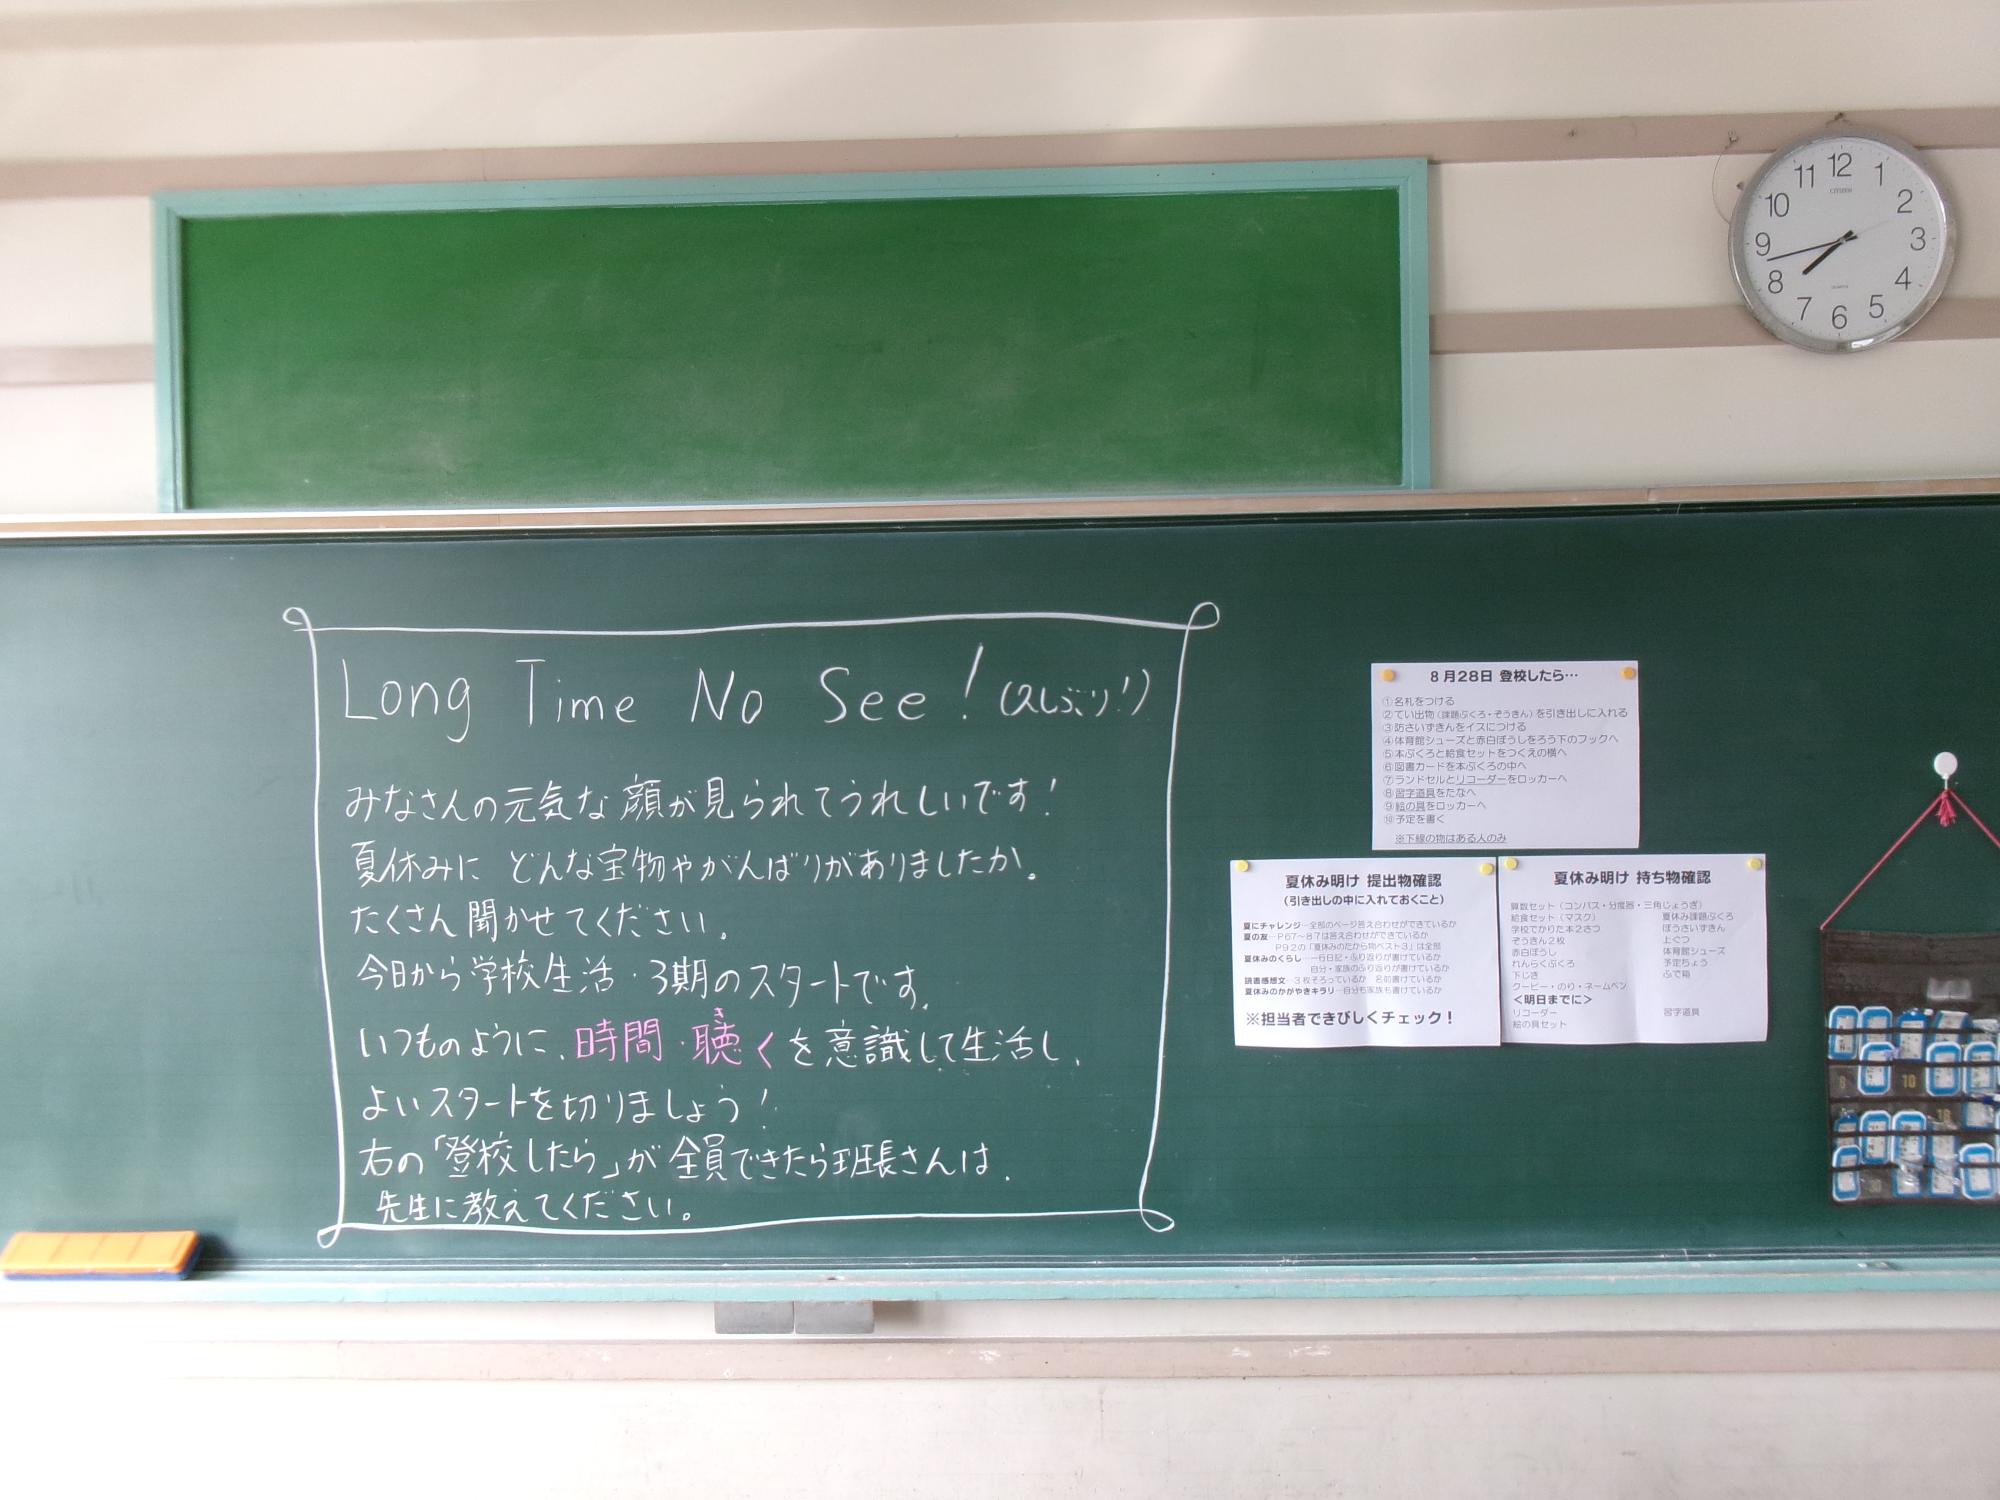 12
11
1
10
2
9
3
8
4
7
5
6
CITIZEN
Long Time No See! (久しぶり!)
みなさんの元気な顔が見られてうれしいです!
夏休みに どんな宝物やがんばりがありましたか。
たくさん聞かせてください。
今日から学校生活・3期のスタートです。
いつものように、時間・聴くを意識して生活し、
き
よいスタートを切りましょう!
右の「登校したら」が全員できたら班長さんは、
先生に教えてください。
8月28日 登校したら…
①名札をつける
②てい出物(課題ぶくろ・ぞうきん)を引き出しに入れる
③防さいずきんをイスにつける
④体育館シューズと赤白ぼうしをろう下のフックへ
⑤本ぶくろと給食セットをつくえの横へ
⑥図書カードを本ぶくろの中へ
⑦ランドセルとリコーダーをロッカーへ
⑧習字道具をたなへ
⑨絵の具をロッカーへ
⑩予定を書く
※下線の物はある人のみ
夏休み明け 提出物確認
(引き出しの中に入れておくこと)
夏にチャレンジ…全部のページ答え合わせができているか
夏の友…P67~87は答え合わせができているか
P92の「夏休みのたから物ベスト3」は全部
夏休みのくらし…一行日記・ふり返りが書けているか
自分・家族のふり返りが書けているか
読書感想文…3枚そろっているか 名前書けているか
夏休みのかがやきキラリ…自分も家族も書けているか
※担当者できびしくチェック!
夏休み明け 持ち物確認
算数セット(コンパス・分度器・三角じょうぎ)
給食セット(マスク) 夏休み課題ぶくろ
学校でかりた本2さつ ぼうさいずきん
ぞうきん2枚 上ぐつ
赤白ぼうし 体育館シューズ
れんらくぶくろ 予定ちょう
下じき ふで箱
クーピー・のり・ネームペン
<明日までに>
リコーダー 習字道具
絵の具セット
8
10
18